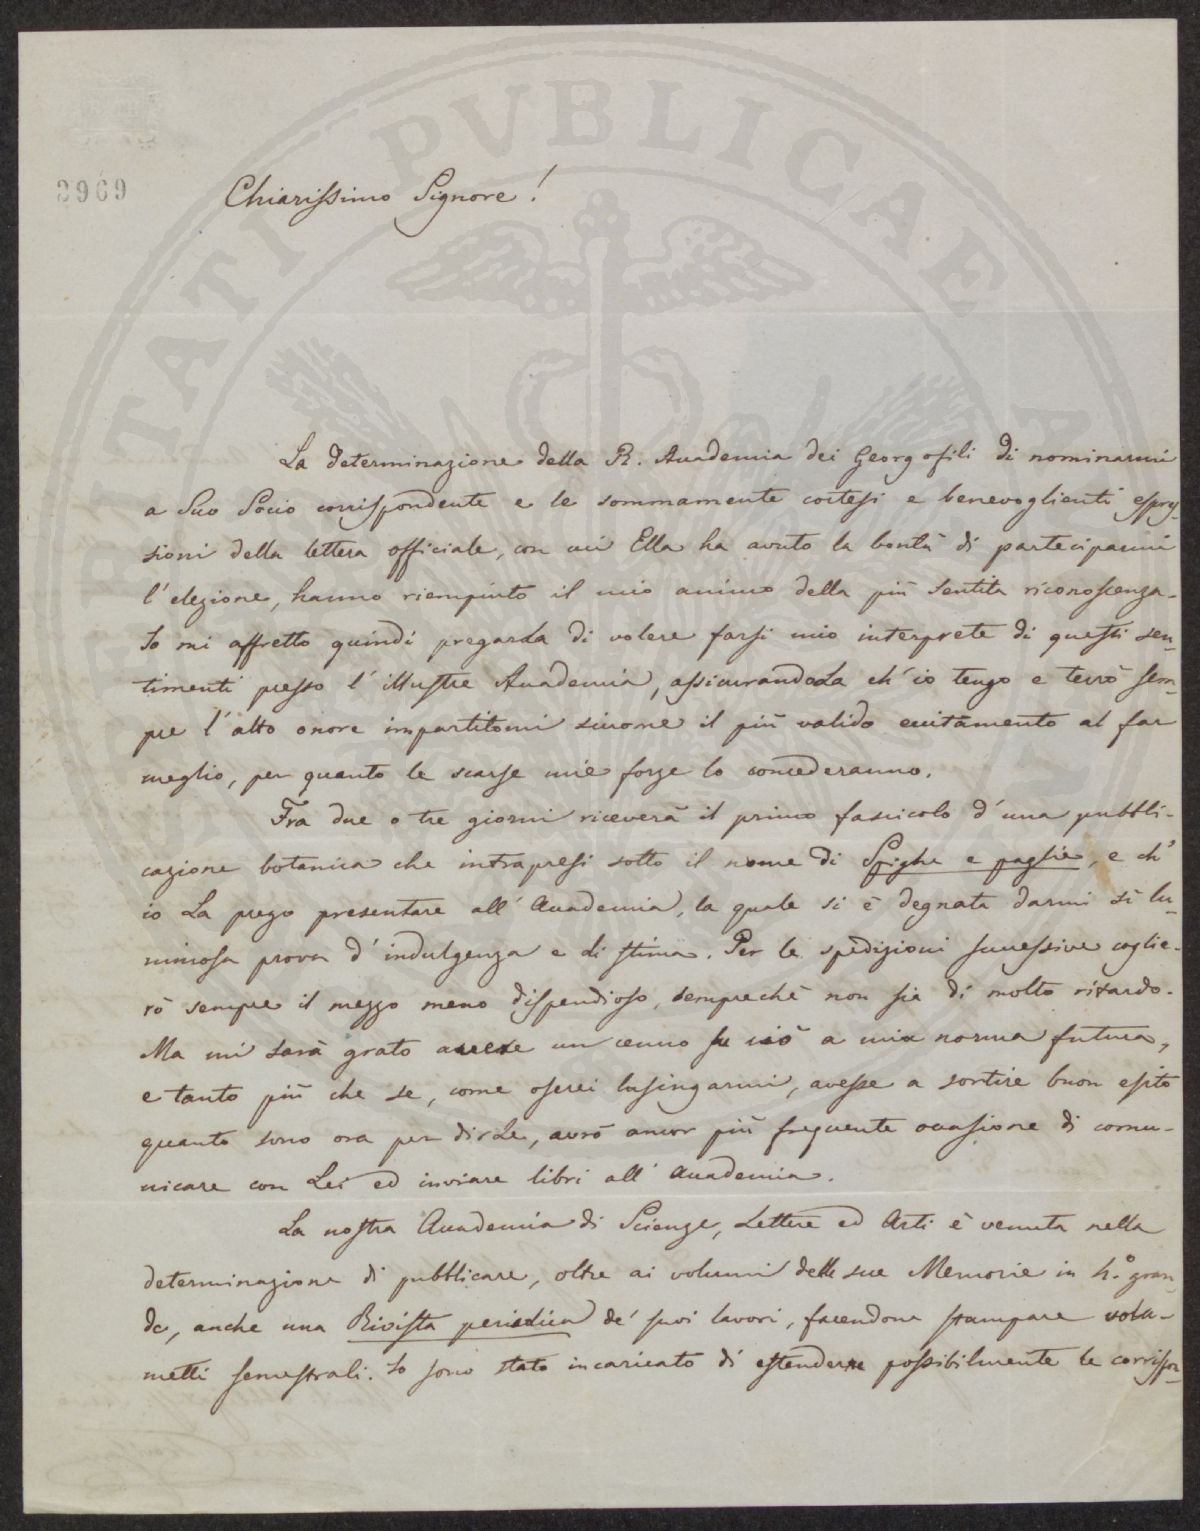 PROSPERITATI PVBLICAE AVGENDAE
8969
Chiarissimo Signore!
La determinazione della R. Accademia dei Georgofili di nominarmi
a Suo Socio corrispondente e le sommamente cortesi e benevoglienti espres-
sioni della lettera officiale, con cui Ella ha avuto la bontà di parteciparmi
l'elezione, hanno riempiuto il mio animo della più sentita riconoscenza.
Io mi affretto quindi pregarLa di volere farsi mio interprete di questi sen-
timenti presso l'illustre Accademia, assicurandoLa ch'io tengo e terrò sem-
pre l'alto onore impartitomi siccome il più valido eccitamento al far
meglio, per quanto le scarse mie forze lo concederanno.
Fra due o tre giorni riceverà il primo fascicolo d'una pubbli-
cazione botanica che intrapresi sotto il nome di Spighe e paglie, e ch'
io La prego presentare all'Accademia, la quale si è degnata darmi sì lu-
minosa prova d'indulgenza e di stima. Per le spedizioni successive coglie-
rò sempre il mezzo meno dispendioso, sempreché non sia di molto ritardo.
Ma mi sarà grato avere un cenno su ciò a mia norma futura,
e tanto più che se, come oserei lusingarmi, avesse a sortire buon esito
quanto sono ora per dirLe, avrò ancor più frequente occasione di comu-
nicare con Lei ed inviare libri all'Accademia.
La nostra Accademia di Scienze, Lettere ed Arti è venuta nella
determinazione di pubblicare, oltre ai volumi delle sue Memorie in 4.° gran-
de, anche una Rivista periodica de' suoi lavori, facendone stampare volu-
metti semestrali. Io sono stato incaricato di estendere possibilmente le corrispon-